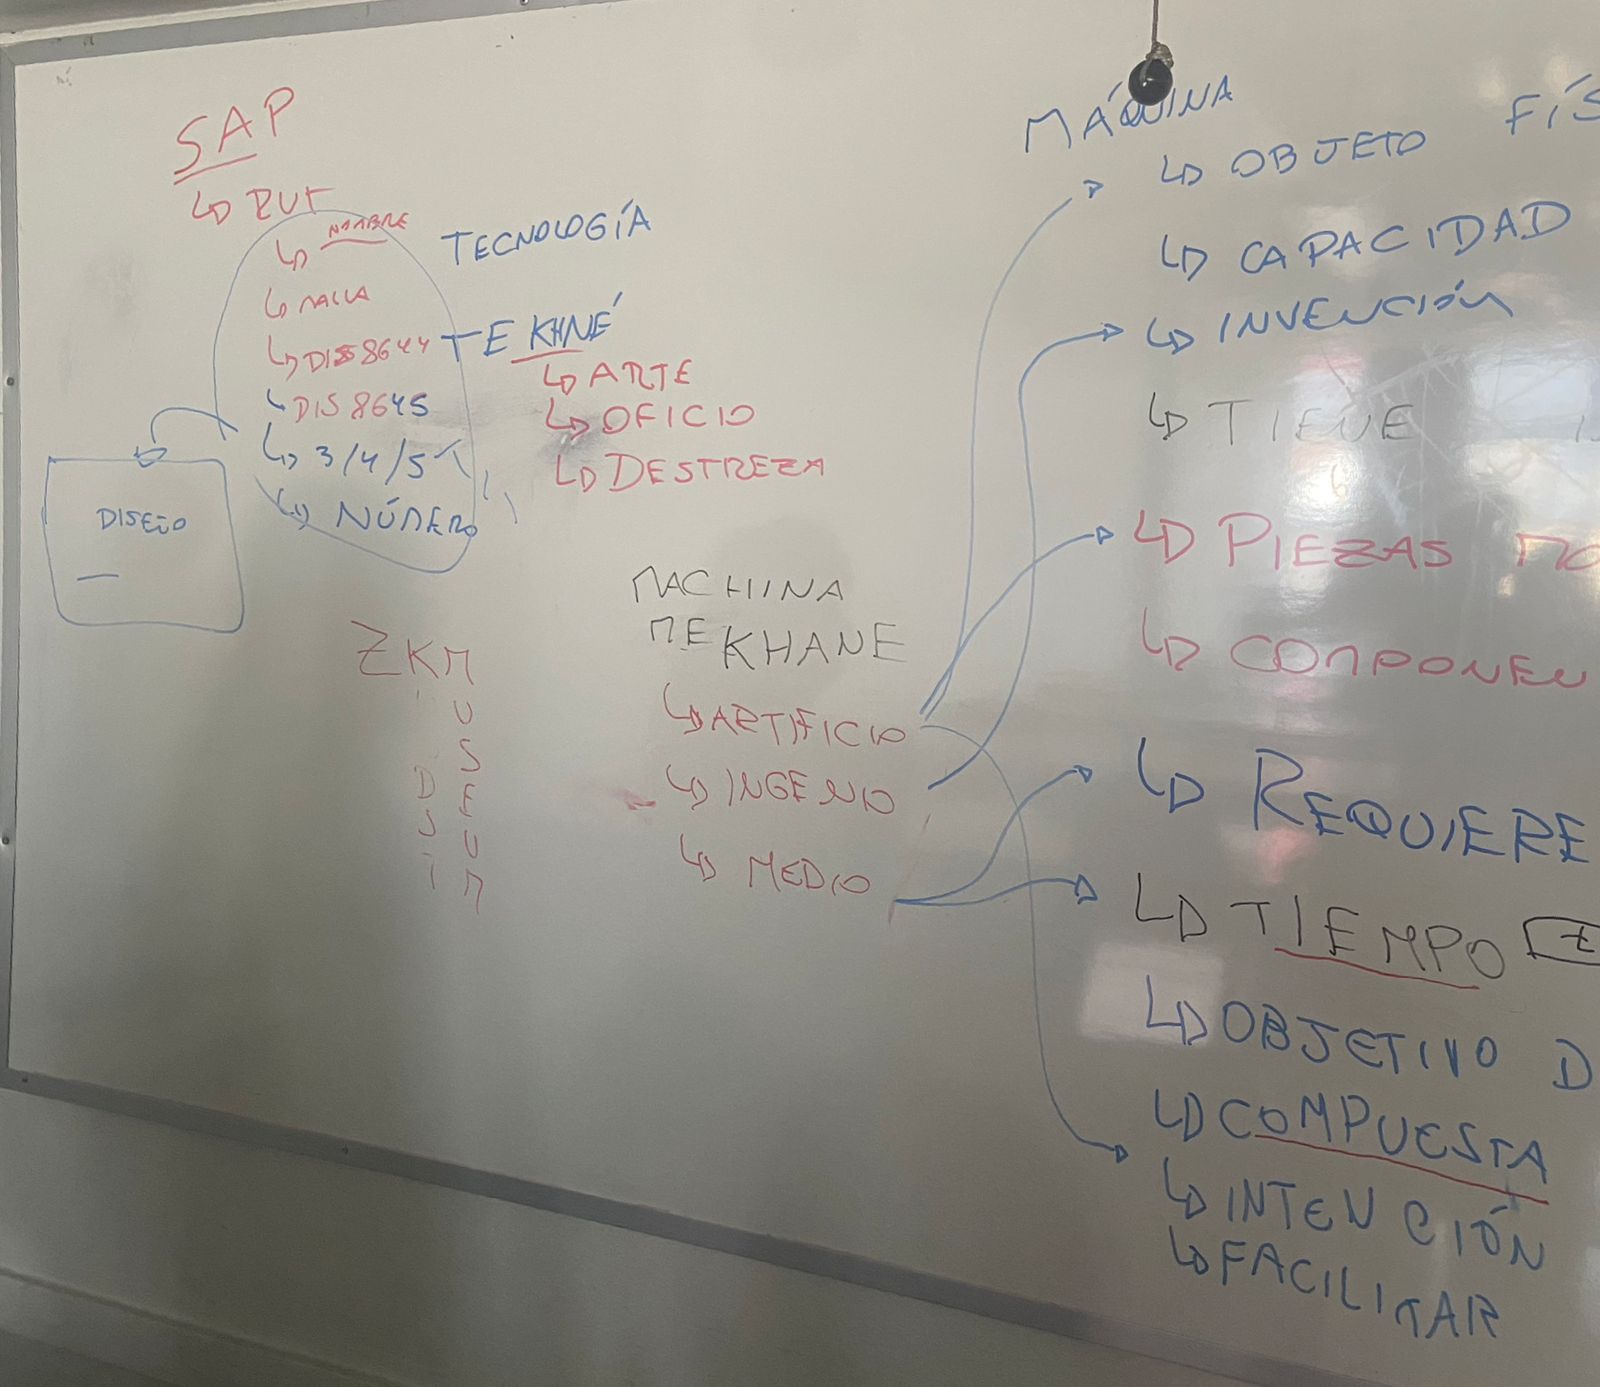 SAP
↳ RUT
↳ NOMBRE
↳ MALLA
↳ DIS8644
↳ DIS8645
↳ 3/4/5
↳ NÚMERO
DISEÑO
TECNOLOGÍA
TEKHNÉ
↳ ARTE
↳ OFICIO
↳ DESTREZA
ZKM
MUSEUM
MACHINA
MEKHANE
↳ ARTIFICIO
↳ INGENIO
↳ MEDIO
MÁQUINA
↳ OBJETO FÍS
↳ CAPACIDAD
↳ INVENCIÓN
↳ TIENE
↳ PIEZAS MO
↳ COMPONEN
↳ REQUIERE
↳ TIEMPO
↳ OBJETIVO D
↳ COMPUESTA
↳ INTENCIÓN
↳ FACILITAR